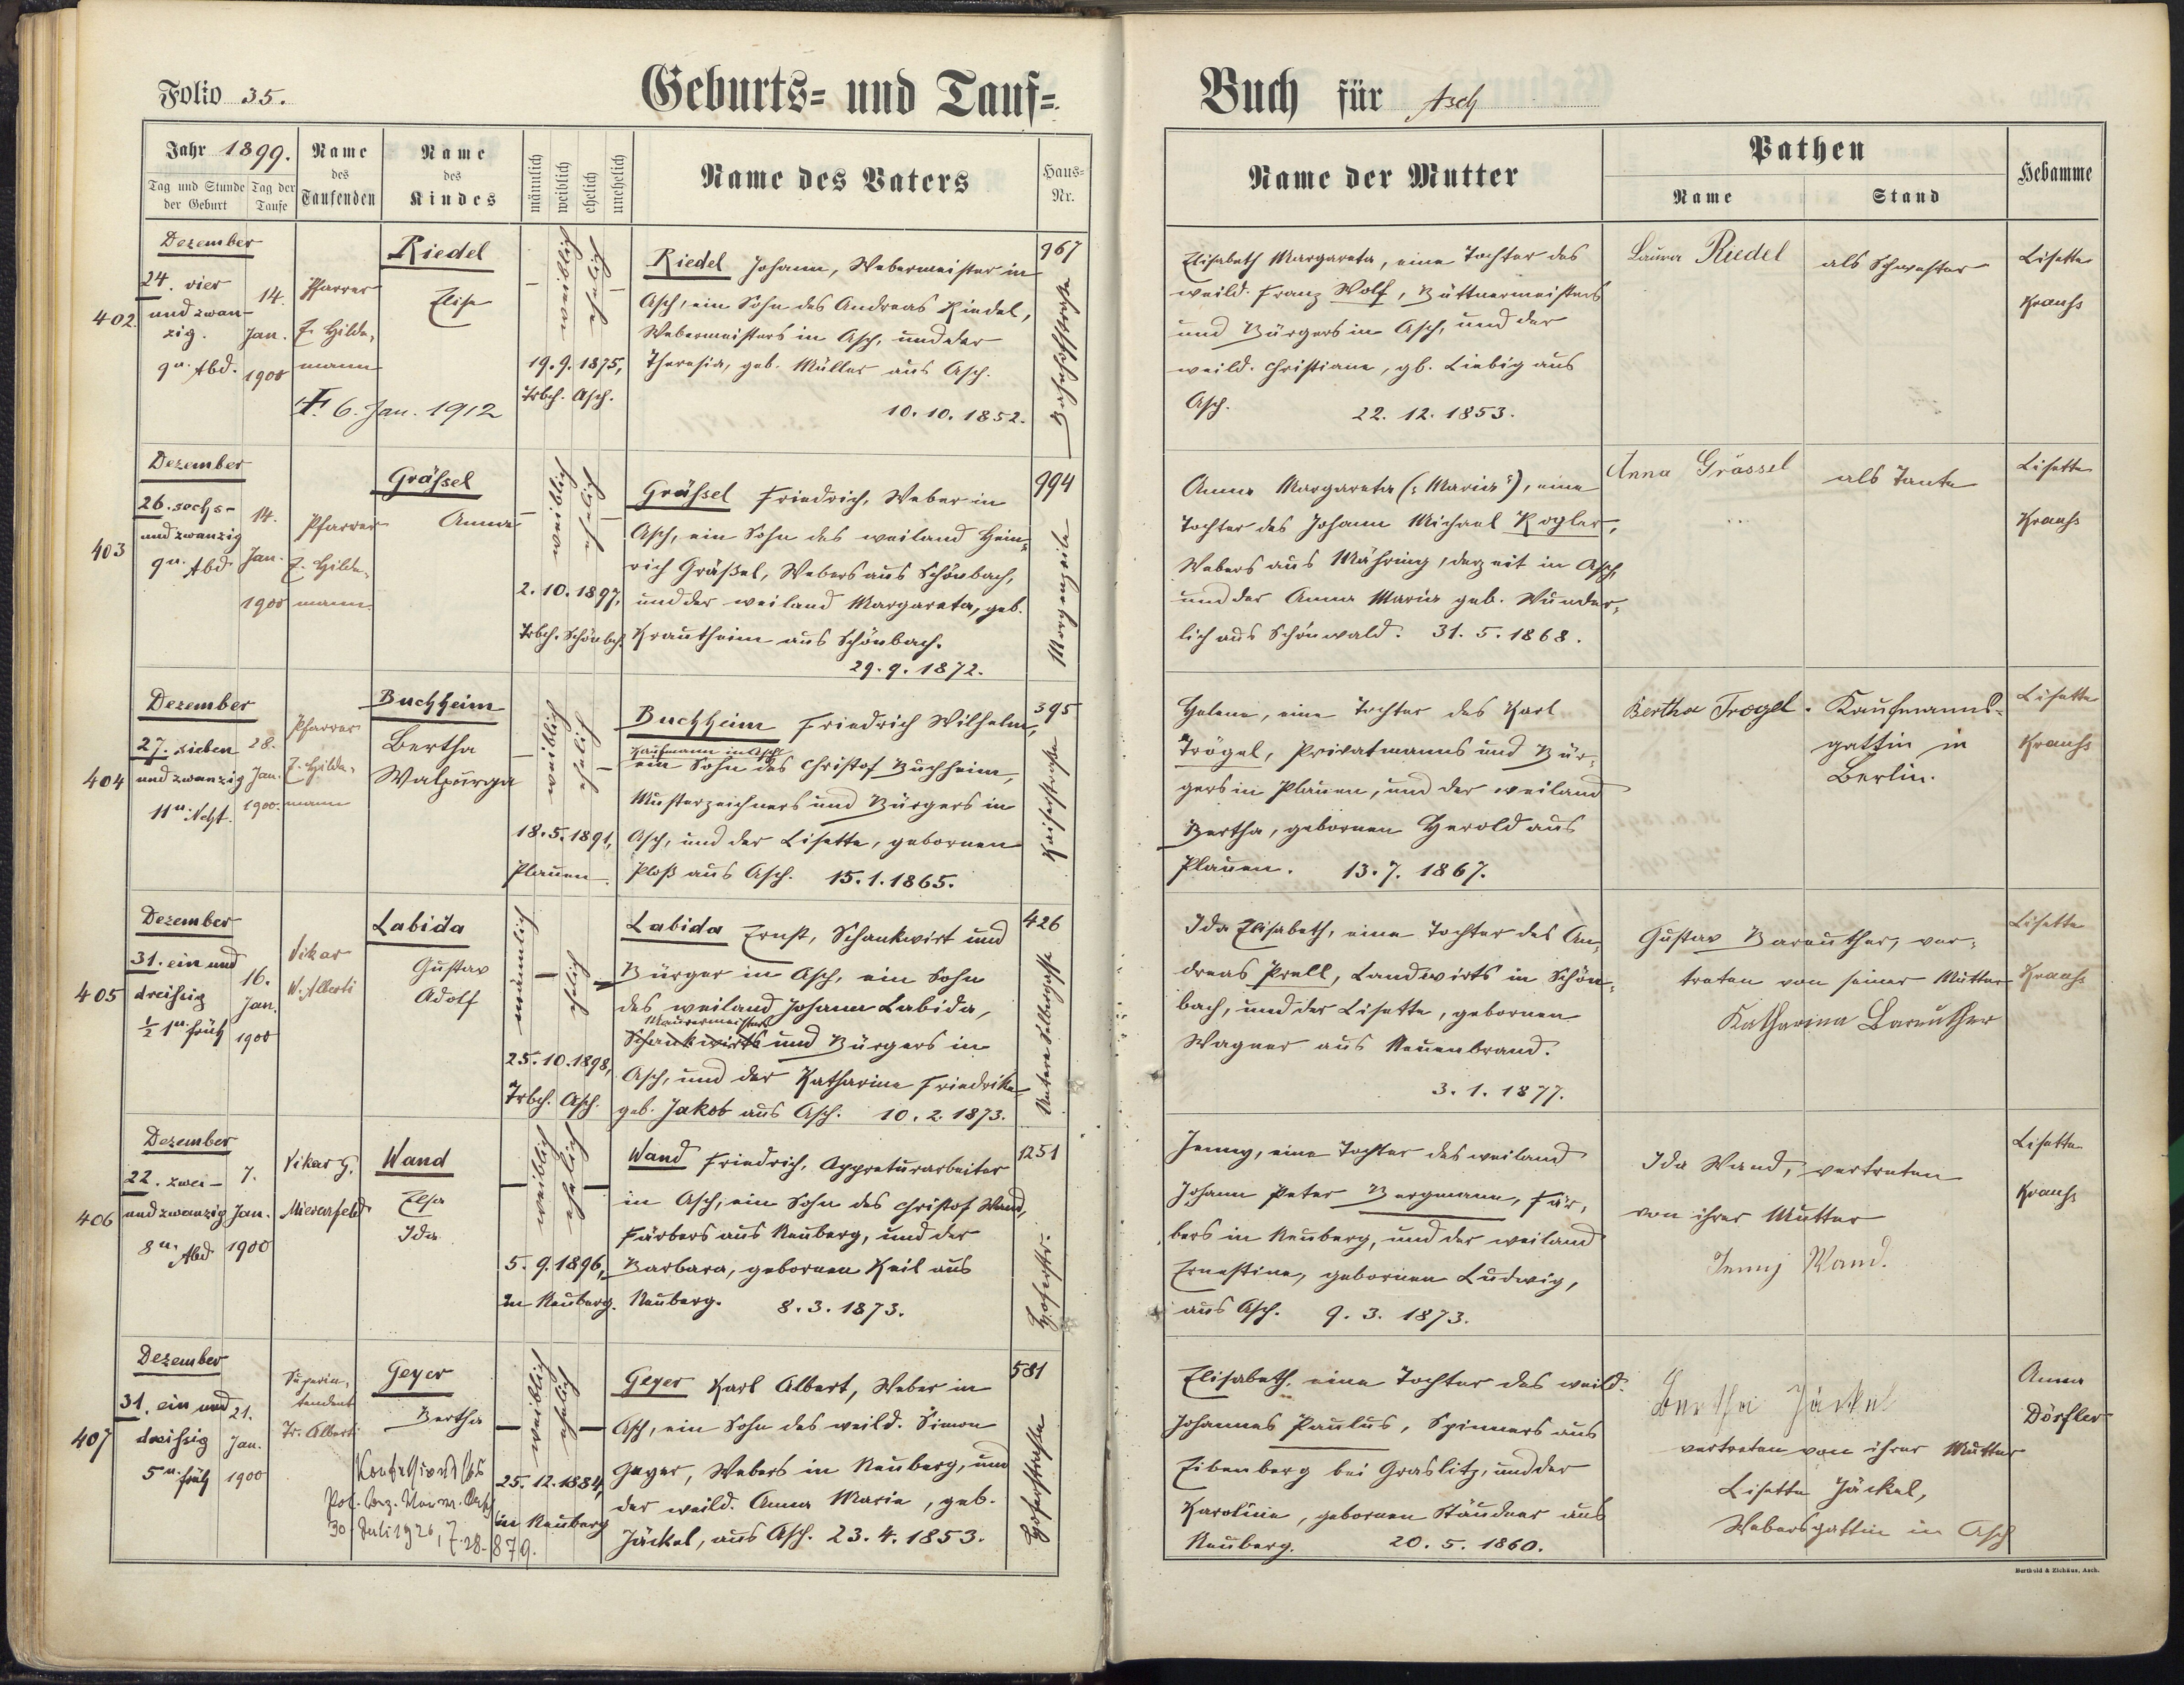 Folio 35.
Geburts= und Tauf=
Jahr 1899.
Tag und Stunde der Geburt
Tag der Taufe
Name des Taufenden
Name des Kindes
männlich
weiblich
ehelich
unehelich
Name des Vaters
Haus= Nr.
402.
Dezember
24. vier
und zwan-
zig.
9 u. Abd.
14.
Jan.
1900
Pfarrer
E. Hilde-
mann
† 6. Jan. 1912
Riedel
Elise
weiblich
ehelich
19. 9. 1875,
Trbch. Asch.
Riedel Johann, Webermeister in
Asch, ein Sohn des Andreas Riedel,
Webermeisters in Asch, und der
Theresia, geb. Müller aus Asch.
10. 10. 1852.
967
Bahnhofstraße
403
Dezember
26. sechs-
und zwanzig
9 u. Abd.
14.
Jan.
1900
Pfarrer
E. Hilde-
mann
Gräßel
Anna
weiblich
ehelich
2. 10. 1897,
Trbch. Schönbch.
Gräßel Friedrich, Weber in
Asch, ein Sohn des weiland Hein-
rich Gräßel, Webers aus Schönbach,
und der weiland Margareta, geb.
Krautheim aus Schönbach.
29. 9. 1872.
994
Morgenzeile
404
Dezember
27. sieben
und zwanzig
11 u. Ncht.
28.
Jan.
1900.
Pfarrer
E. Hilde-
mann
Buchheim
Bertha
Walpurga
weiblich
ehelich
18. 5. 1891,
Plauen.
Buchheim Friedrich Wilhelm,
Kaufmann in Asch
ein Sohn des Christof Buchheim,
Musterzeichners und Bürgers in
Asch, und der Lisette, gebornen
Ploß aus Asch. 15. 1. 1865.
395
Kaiserstraße
405
Dezember
31. ein und
dreißig
½ 1 u. früh
16.
Jan.
1900
Vikar
W. Alberti
Labida
Gustav
Adolf
männlich
ehelich
25. 10. 1898,
Trbch. Asch.
Labida Ernst, Schankwirt und
Bürger in Asch, ein Sohn
des weiland Johann Labida,
Maurermeisters
Schankwirts und Bürgers in
Asch, und der Katharine Friedrike
geb. Jakob aus Asch. 10. 2. 1873.
426
Untere Selbergasse
406
Dezember
22. zwei-
und zwanzig
8 u. Abd
7.
Jan.
1900
Vikar G.
Mievenfeld
Wand
Elsa
Ida
weiblich
ehelich
5. 9. 1896,
in Neuberg.
Wand Friedrich, Appreturarbeiter
in Asch, ein Sohn des Christof Wand,
Färbers aus Neuberg, und der
Barbara, gebornen Keil aus
Neuberg. 8. 3. 1873.
1251
Hoferstr.
407
Dezember
31. ein und
dreißig
5 u. früh
21.
Jan.
1900
Superin-
tendent
Tr. Alberti
Geyer
Bertha
30. Juli 1926, Z. 28.879.
weiblich
ehelich
25. 12. 1884,
in Neuberg
Geyer Karl Albert, Weber in
Asch, ein Sohn des weild. Simon
Geyer, Webers in Neuberg, und
der weild. Anna Maria, geb.
Jäckel, aus Asch. 23. 4. 1853.
581
Hoferstraße
Buch für Asch
Name der Mutter
Pathen
Name
Stand
Hebamme
Elisabeth Margareta, eine Tochter des
weild. Franz Wolf, Büttnermeisters
und Bürgers in Asch, und der
weild. Christiane, gb. Liebig aus
Asch.
22. 12. 1853.
Laura Riedel
als Schwester
Lisette
Krauß
Anna Margareta (: Maria :), eine
Tochter des Johann Michael Kogler,
Webers aus Mähring, derzeit in Asch,
und der Anna Maria geb. Wunder-
lich aus Schönwald. 31. 5. 1868.
Anna Grässel
als Tante
Lisette
Krauß
Helene, eine Tochter des Karl
Trögel, Privatmanns und Bür-
gers in Plauen, und der weiland
Bertha, gebornen Herold aus
Plauen. 13. 7. 1867.
Bertha Trögel.
Kaufmanns-
gattin in
Berlin.
Lisette
Krauß
Ida Elisabeth, eine Tochter des An-
dreas Prell, Landwirts in Schön-
bach, und der Lisette, gebornen
Wagner aus Neuenbrand.
3. 1. 1877.
Gustav Bareuther, ver-
treten von seiner Mutter
Katharina Bareuther
Lisette
Krauß
Jenny, eine Tochter des weiland
Johann Peter Bergmann, Fär-
bers in Neuberg, und der weiland
Ernestine, gebornen Ludwig,
aus Asch. 9. 3. 1873.
Ida Wand, vertreten
von ihrer Mutter
Jenny Wand.
Lisette
Krauß
Elisabeth, eine Tochter des weild.
Johannes Paulus, Spinners aus
Eibenberg bei Graslitz, und der
Karoline, gebornen Ständner aus
Neuberg. 20. 5. 1860.
Bertha Jäckel
vertreten von ihrer Mutter
Lisette Jäckel,
Webersgattin in Asch
Anna
Dörfler
Berthold & Zishäus, Asch.